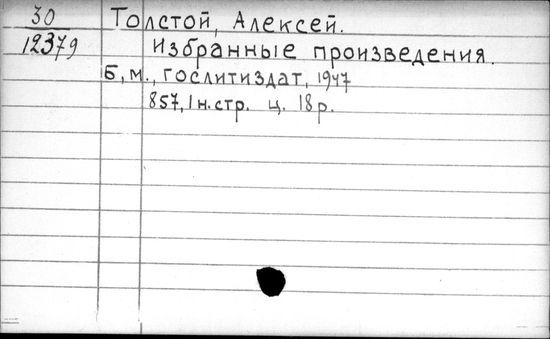 30
12379
Толстой, Алексей.
Избранные произведения.
Б, м., Гослитиздат, 1947
857, 1 н.стр. ц. 18 р.